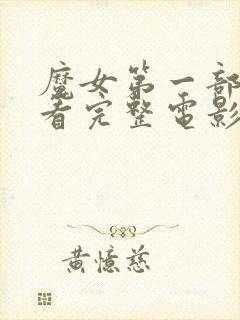 魔女第一部
看完整電影
黃憶慈